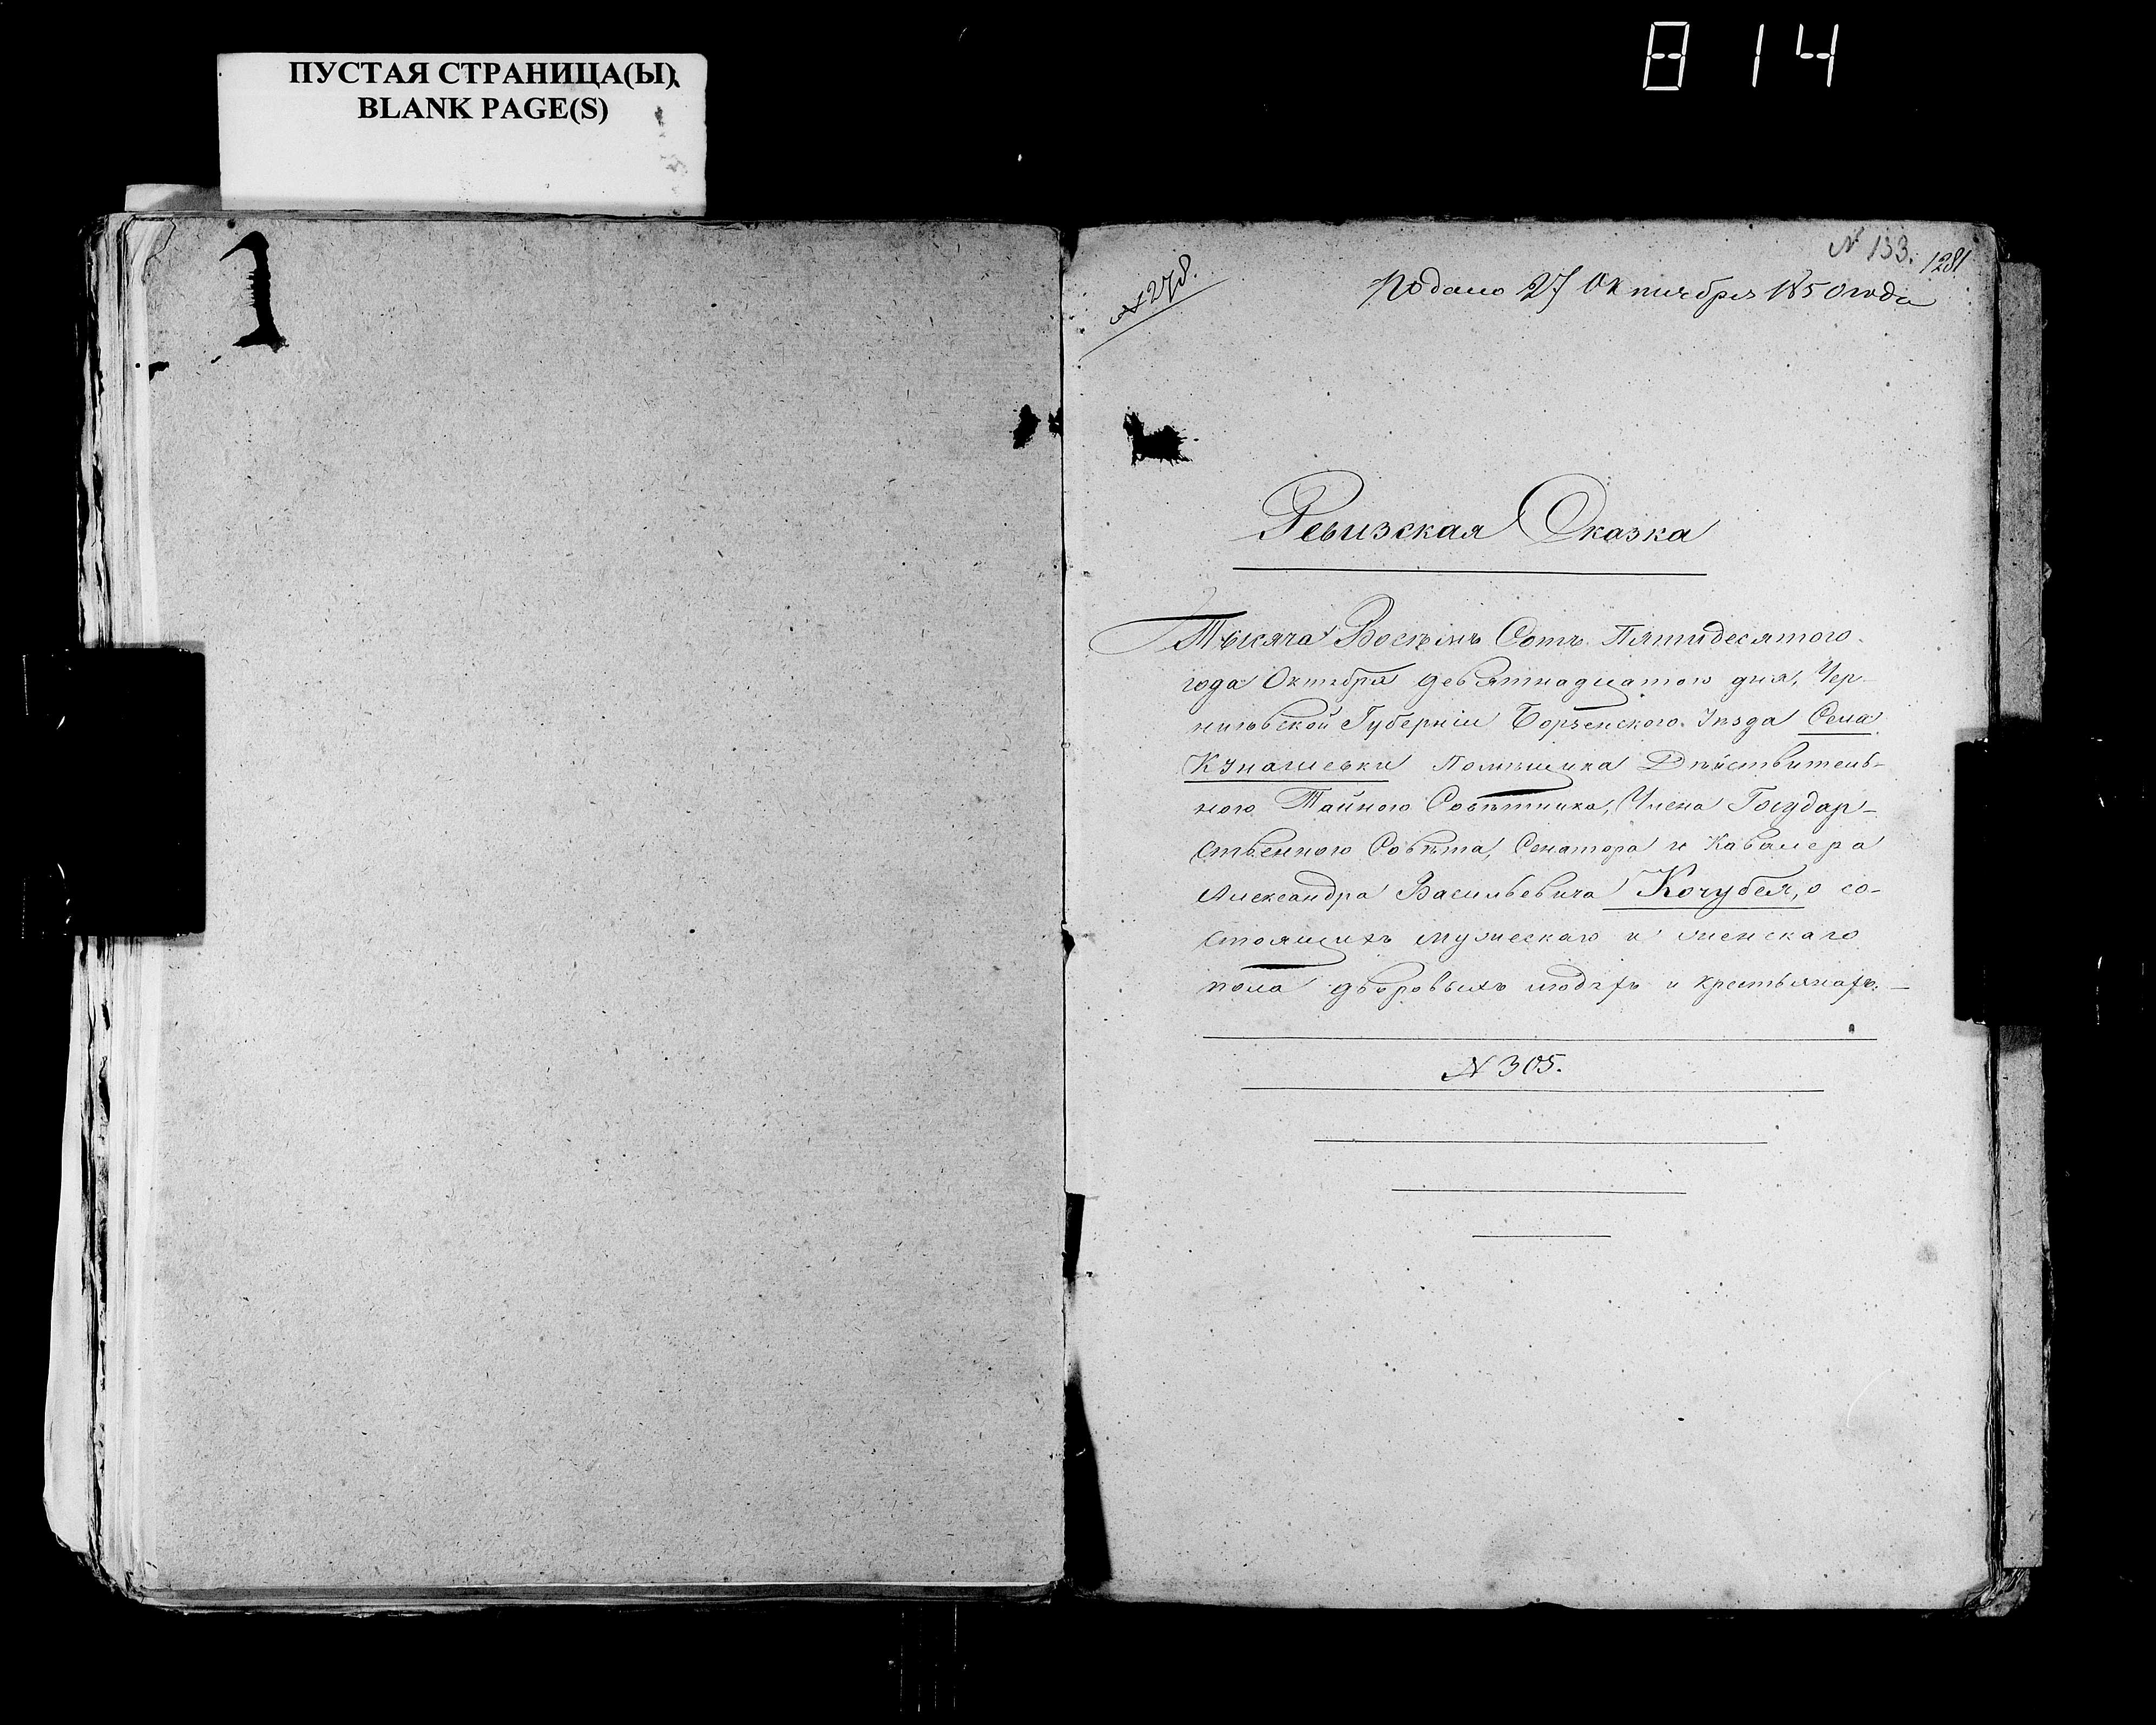 8 14
ПУСТАЯ СТРАНИЦА(Ы)
BLANK PAGE(S)
1
№ 278.
№ 133. 1281
Подано 27 Октября 1850 года
Ревизская Сказка
Тысяча Восемь Сотъ Пятидесятого
года Октября девятнадцатого дня, Чер-
ниговской Губерніи Борзенского Уѣзда Села
Кунашевки Помѣщика Дѣйствитель-
ного Тайного Совѣтника, Члена Государ-
ственного Совѣта, Сенатора и Кавалера
Александра Васильевича Кочубея, о со-
стоящихъ мужескаго и женскаго
пола дворовыхъ людѣхъ и крестьянахъ.
№ 305.